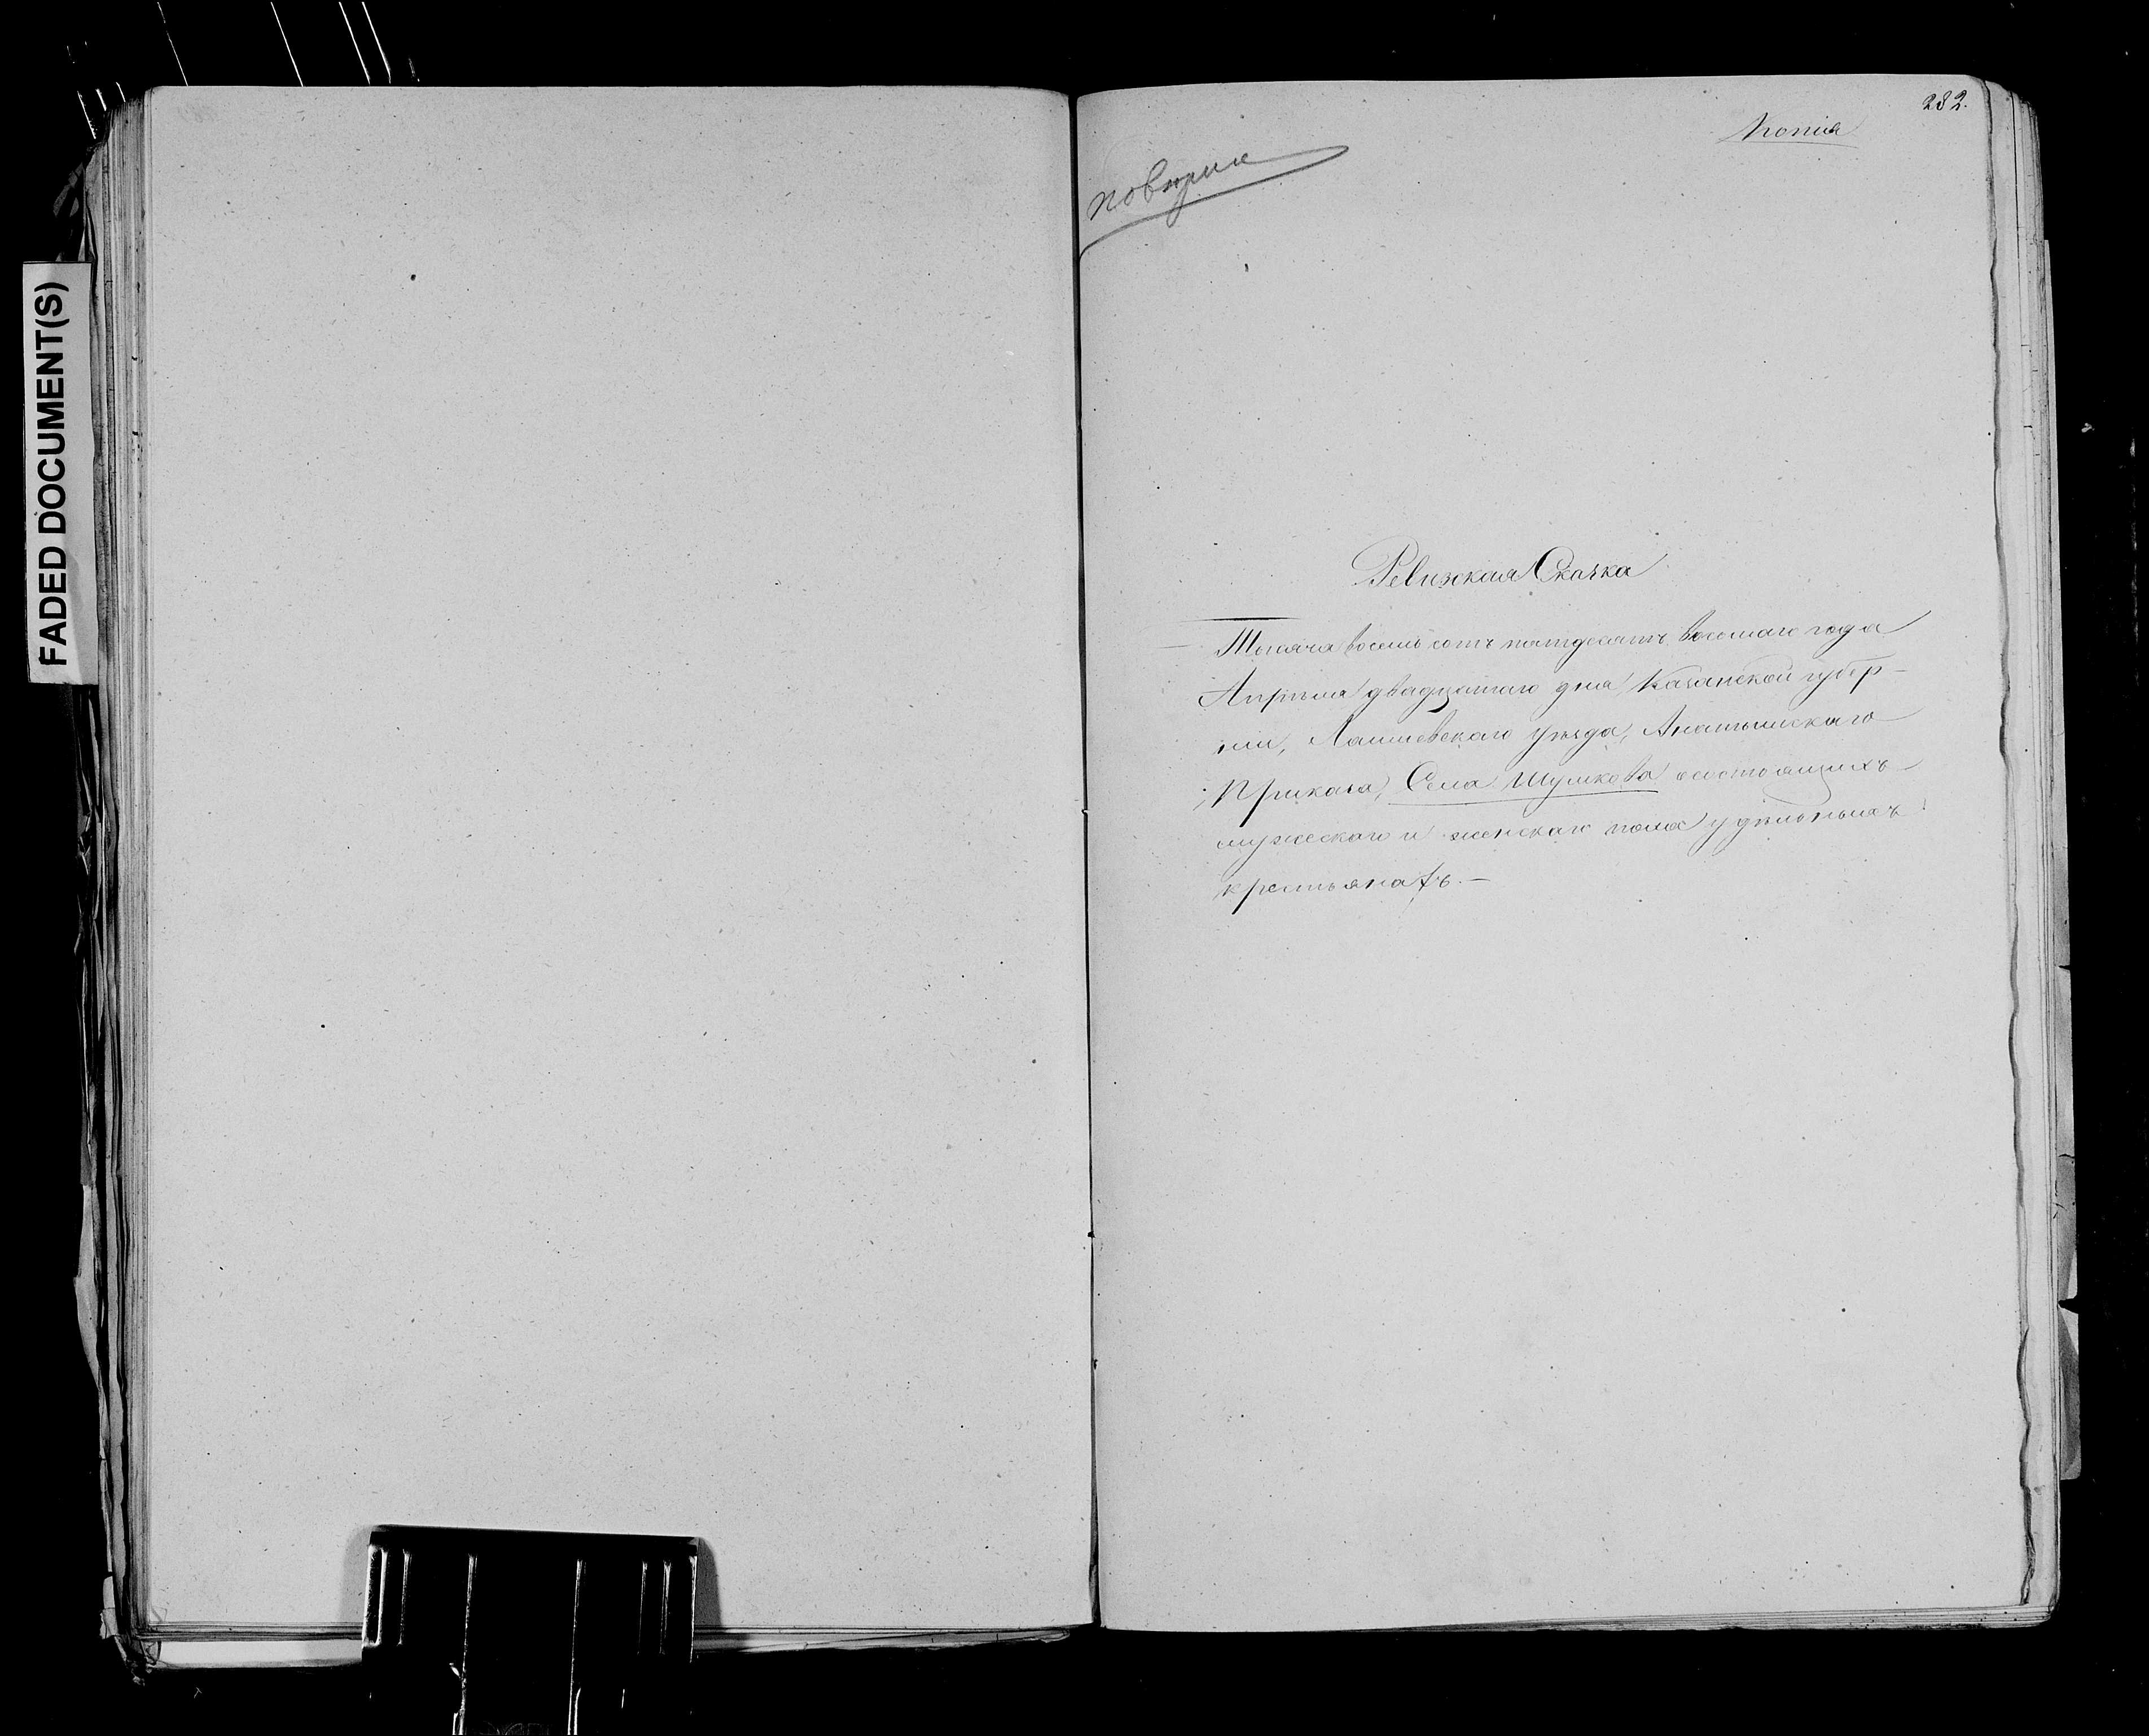 FADED DOCUMENT(S)
232.
Копія
повѣрна
Ревизская Сказка
Тысяча восемь сотъ пятдесятъ восьмаго года
Апрѣля двадцатаго дня Казанской губер-
ніи, Лаишевскаго уѣзда, Анатышскаго
Приказа, Села Шумкова о состоящихъ
мужескаго и женскаго пола удѣльныхъ
крестьянахъ.—